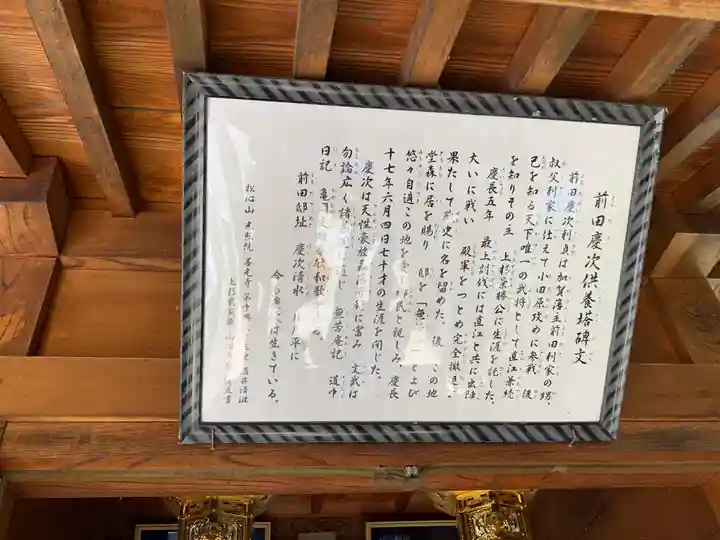 前田慶次供養塔碑文
前田慶次利貞は加賀藩主前田利家の甥、
叔父利家に仕えて小田原攻めに参戦 後
己を知る天下唯一の武将として直江兼続
を知りその主 上杉景勝公に生涯を託した。
慶長五年 最上討伐には直江と共に出陣
大いに戦い 殿軍をつとめ完全撤
果たして 史に名を留めた。後 この地
堂森に居を賜り 邸を「無 」とよび
悠々自適この地を 民と親しみ、慶長
十七年六月四日七十才の生涯を閉じた。
慶次は天性豪 に富み 文武は
勿論広く諸 通じ 無苦庵記 道中
日記 亀 和歌 る。
前田邸址 慶次清水 平に
今も には生きている。
松心山 光照院 善光寺 第 酒井清滋
上杉家家 山 書